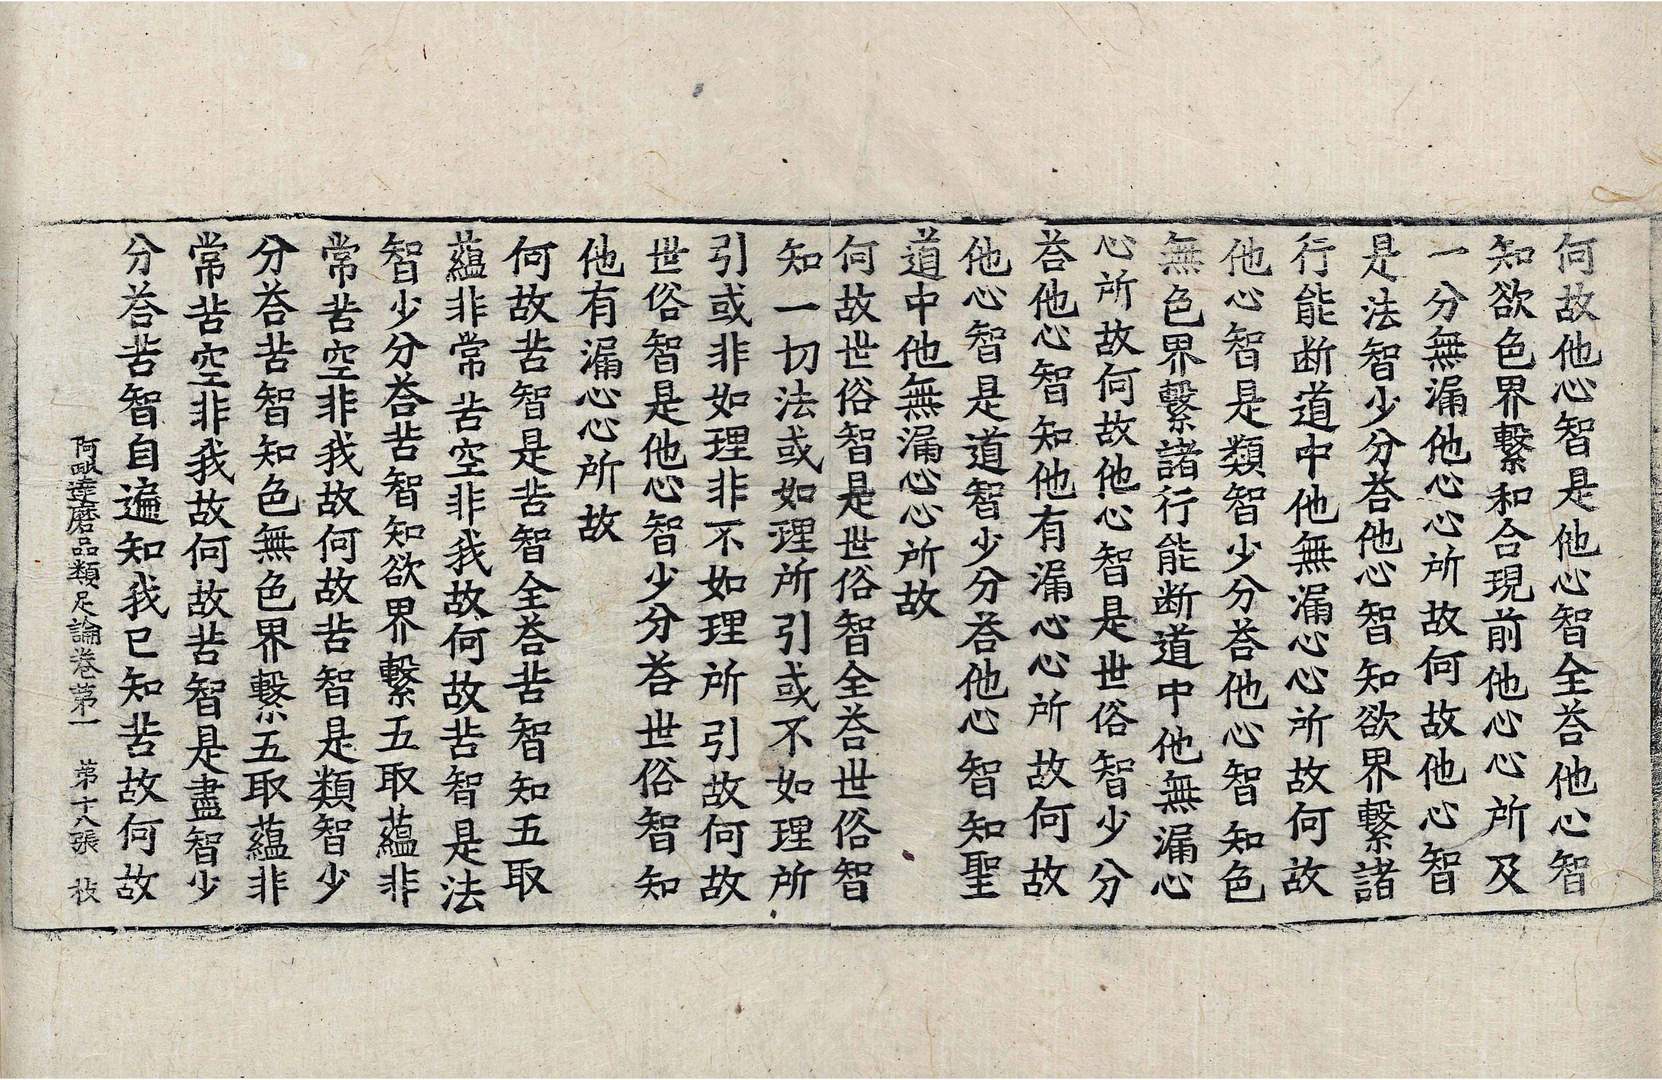 何故他心智是他心智全荅他心智
知欲色界繫和合現前他心心所及
一分無漏他心心所故何故他心智
是法智少分荅他心智知欲界繫諸
行能断道中他無漏心心所故何故
他心智是類智少分荅他心智知色
無色界繫諸行能断道中他無漏心
心所故何故他心智是世俗智少分
荅他心智知他有漏心心所故何故
他心智是道智少分荅他心智知聖
道中他無漏心心所故
何故世俗智是世俗智全荅世俗智
知一切法或如理所引或不如理所
引或非如理非不如理所引故何故
世俗智是他心智少分荅世俗智知
他有漏心心所故
何故苦智是苦智全荅苦智知五取
蘊非常苦空非我故何故苦智是法
智少分荅苦智知欲界繫五取蘊非
常苦空非我故何故苦智是類智少
分荅苦智知色無色界繫五取蘊非
常苦空非我故何故苦智是盡智少
分荅苦智自遍知我已知苦故何故
阿毗達磨品類足論卷苐一 苐十八張 㤼